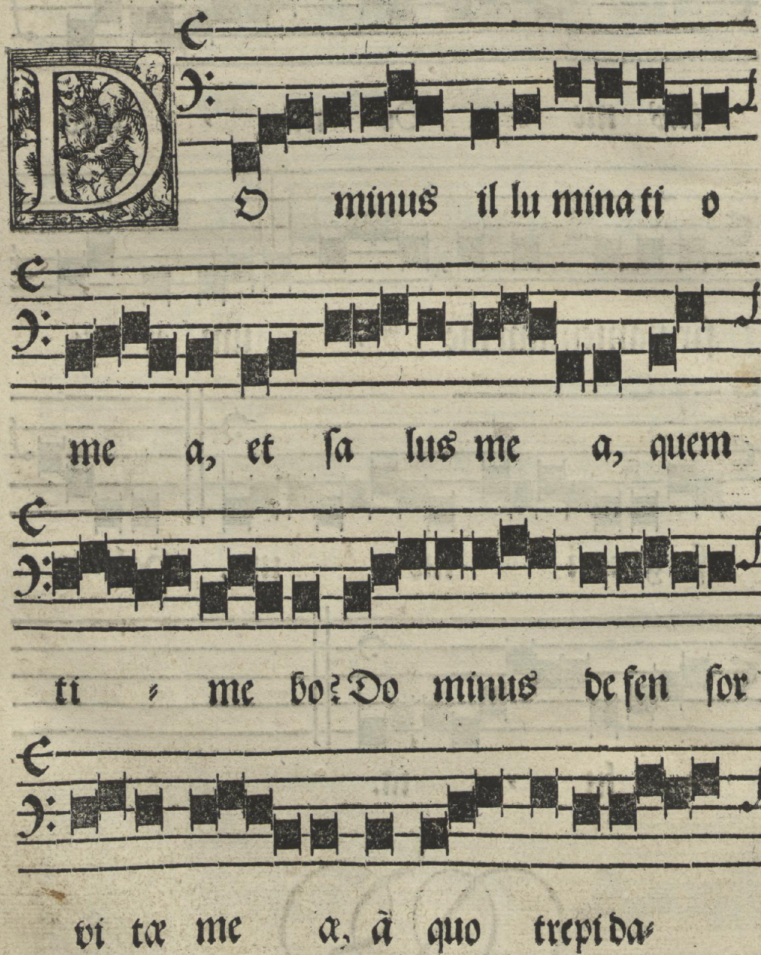 DO minus il lu mina ti o
me a, et sa lus me a, quem
ti ⸗ me bo? Do minus de fen sor
vi tæ me æ, à quo trepi da⸗